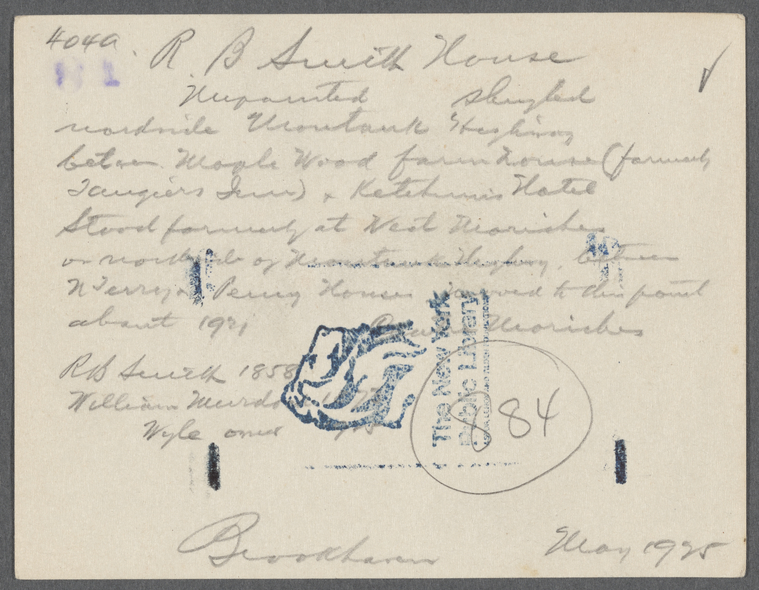 404a. R B Smith House
Unpainted shingled
northside Montauk Highway
between Maple Wood farm house (formerly
Tangiers Inn) & Ketchums Hotel
Stood formerly at West Moriches
on northside of Montauk Highway, between
N Terry & Penny Houses moved to this point
about 1921 Moriches
RB Smith 1858
William
Wyle owner
The New York
Public Library
884
Brookhaven May 1925